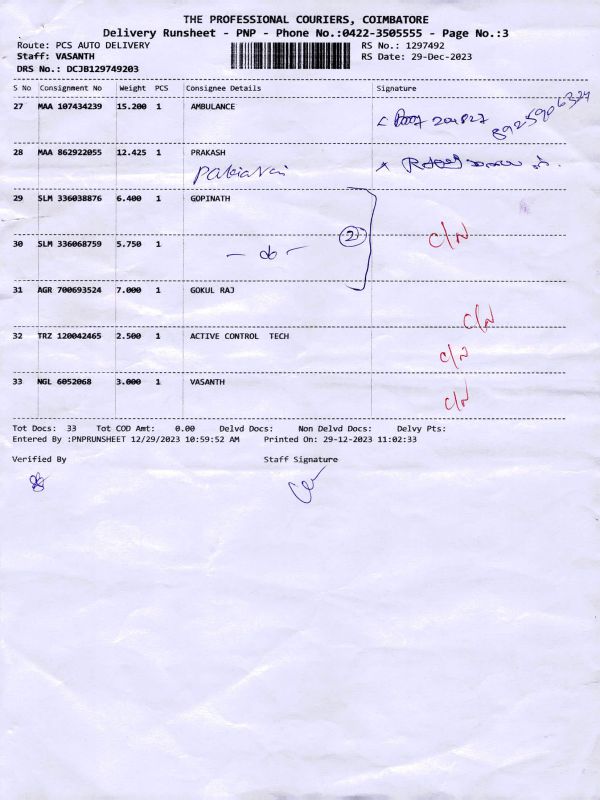 THE PROFESSIONAL COURIERS, COIMBATORE
Delivery Runsheet - PNP - Phone No.:0422-3505555 - Page No.:3
Route: PCS AUTO DELIVERY RS No.: 1297492
Staff: VASANTH RS Date: 29-Dec-2023
DRS No.: DCJB129749203
S No Consignment No Weight PCS Consignee Details Signature
27 MAA 107434239 15.200 1 AMBULANCE
8925906324
28 MAA 862922055 12.425 1 PRAKASH
29 SLM 336038876 6.400 1 GOPINATH
2 C/N
30 SLM 336068759 5.750 1
- do -
31 AGR 700693524 7.000 1 GOKUL RAJ
C/N
32 TRZ 120042465 2.500 1 ACTIVE CONTROL TECH
C/N
33 NGL 6052068 3.000 1 VASANTH
C/N
Tot Docs: 33 Tot COD Amt: 0.00 Delvd Docs: Non Delvd Docs: Delvy Pts:
Entered By :PNPRUNSHEET 12/29/2023 10:59:52 AM Printed On: 29-12-2023 11:02:33
Verified By Staff Signature